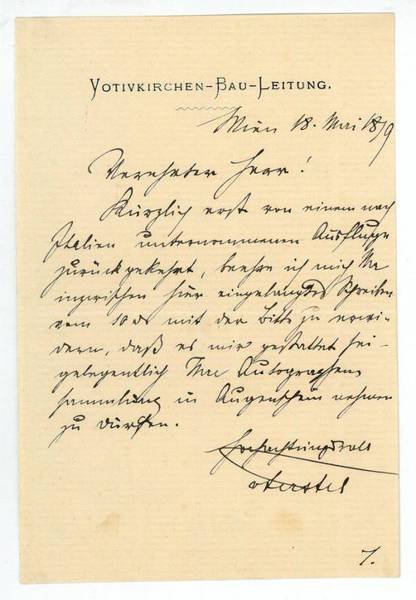 VOTIVKIRCHEN-BAU-LEITUNG.
Wien 18. Mai 1879
Verehrter Herr!
Kürzlich erst von einem nach
Italien unternommenen Ausfluge
zurückgekehrt, beehre ich mich Ihr
inzwischen hier eingelangtes Schreiben
vom 10 ds mit der Bitte zu erwi-
dern, daß es mir gestattet sei
gelegentlich Ihre Autographen
sammlung in Augenschein nehmen
zu dürfen.
Hochachtungsvoll